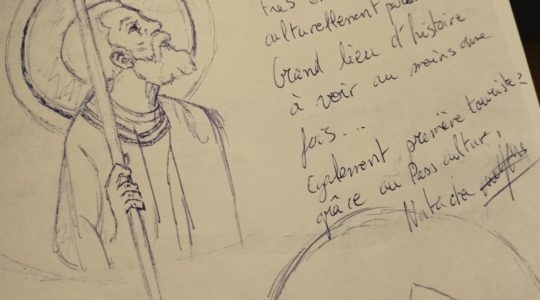 très
culturellement
Grand lieu d'histoire
à voir au moins une
fois...
Egalement première touriste
grâce au Pass culture,
Natacha